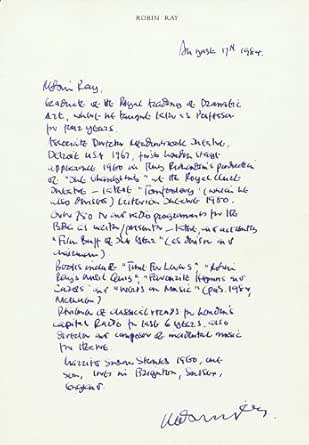 ROBIN RAY
August 17th 1984.
Robin Ray,
Graduate of the Royal Academy of Dramatic
Art, where he taught later as Professor
for four years.
Associate Director Meadowbrook Theatre,
Detroit USA 1967, first London stage
appearance 1960 in Tony Richardson's production
of "The Changeling" at the Royal Court
Theatre – latest "Tomfoolery" (which he
also devised) Criterion Theatre 1980.
Over 750 TV and radio programmes for the
BBC as writer/presenter – latest,
"Film Buff of the Year" (as deviser and
chairman)
Books include "Time For Lovers" "Robin
Ray's Music Quiz", "Favourite Hymns and
Carols" and "Words on Music" (pub. 1984,
Methuen)
Reviewer of classical records for London's
Capital Radio for last 6 years. Also
director and composer of incidental music
for theatre
Married Susan Stranks 1960, one
son, lives in Brighton, Sussex,
England.
Robin Ray